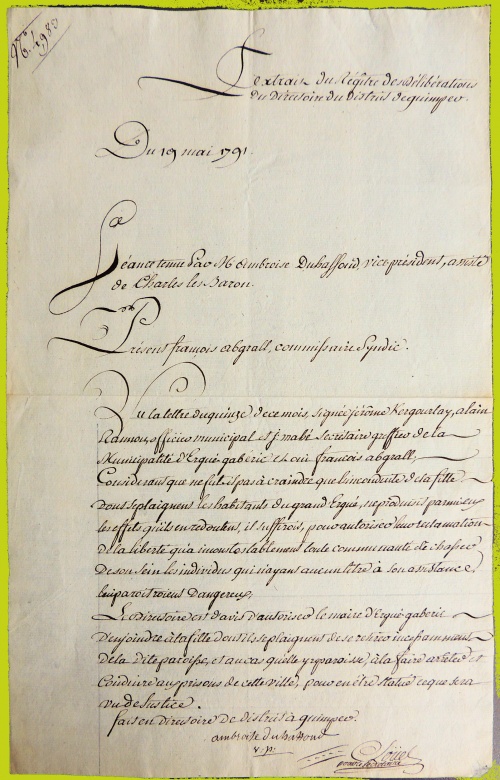 Extrait du Régître des Délibérations
du Directoire du District de quimper.
Du 19 mai 1791.
Séance tenue Par M. Ambroise Duhaffond, vice-président, assisté
de Charles les Baron.
Présent françois abgrall, commissaire Syndic.
Vu la lettre du quinze de ce mois, signée jérôme Kergourlay, alain
Rannou, officier municipal et j. mahé Secrétaire greffier de la
Municipalité d'Ergué-gabéric et ouï françois abgrall,
Considerant que ne fut-il pas à craindre que l'inconduite de la fille
Dont se plaignent les habitants du grand Ergué, ne produisit parmi eux
les effets qu'ils en redoutent, il suffiroit, pour autoriser leur reclamation
de la liberté qu'a incontestablement toute communauté de chasser
de son Sein les individus qui n'ayans aucun titre à son assistance
lui paroitroient Dangereux,
Le directoire est d'avis d'autoriser le maire d'Ergué-gaberic
D'enjoindre à la fille dont ils se plaignent de se retirer incessamment
de la dite paroisse, et au cas qu'elle y reparoisse, à la faire arrêter et
Conduire aux prisons de cette ville, pour en être statué ce que sera
vu de justice.
fait en directoire de district à quimper.
ambroise duhaffond
v. p.